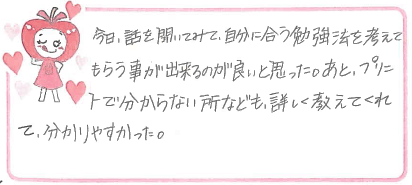 今日、話を聞いてみて、自分に合う勉強法を考えて
もらう事が出来るのが良いと思った。あと、プリン
トで分からない所なども、詳しく教えてくれ
て、分かりやすかった。